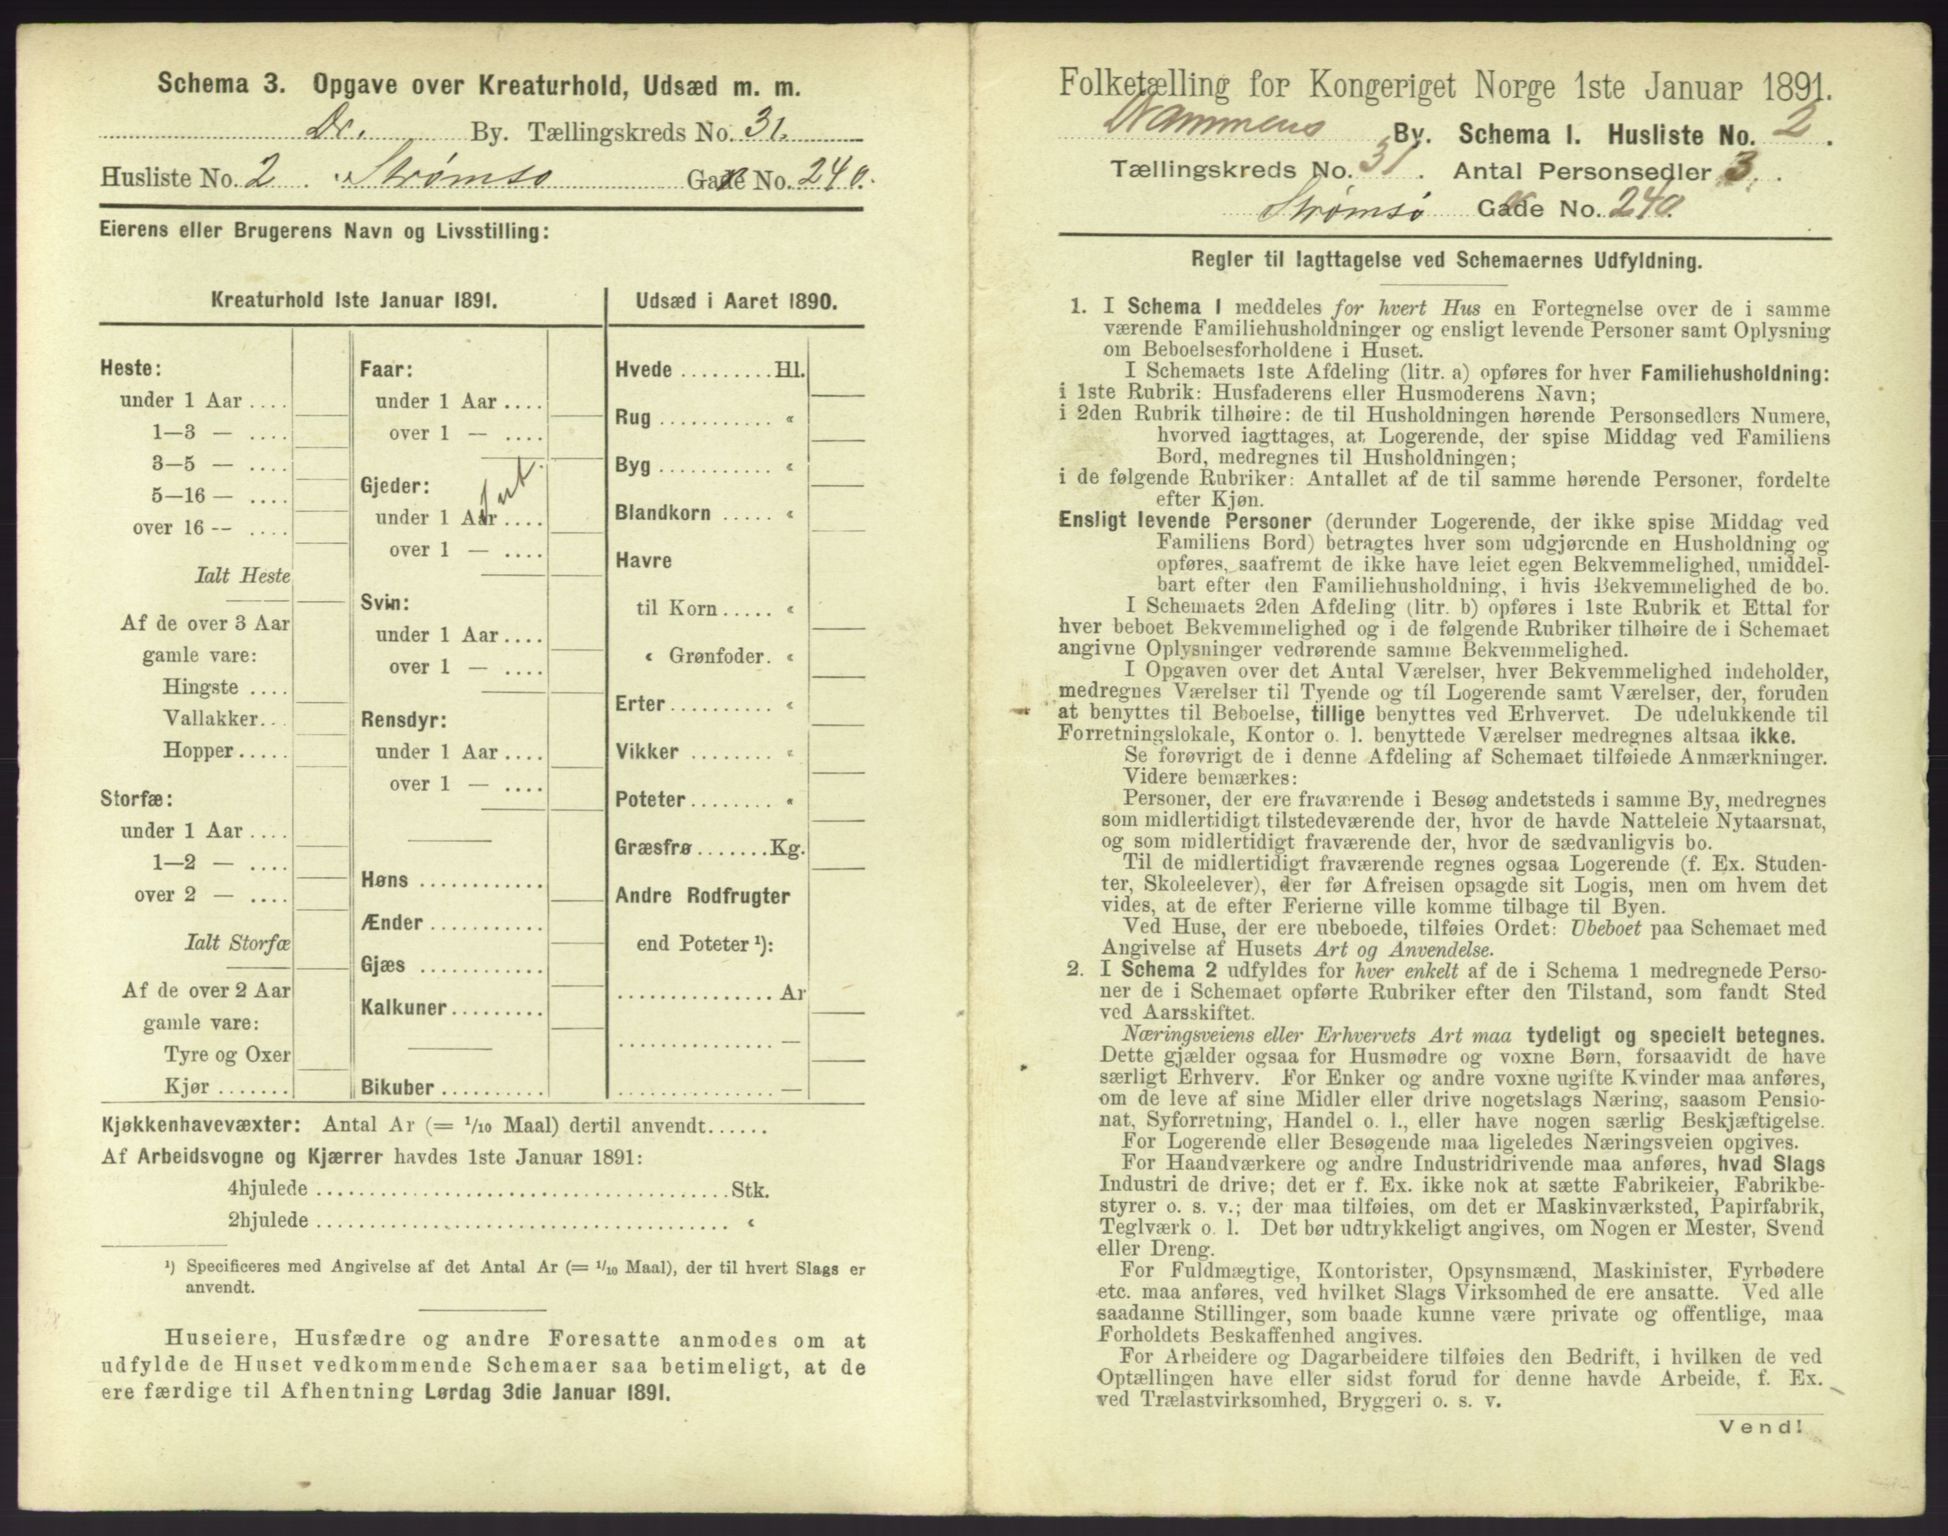 Schema 3. Opgave over Kreaturhold, Udsæd m. m.
Dr. By. Tællingskreds No. 31.
Husliste No. 2 Strømsø Gade No. 240.
Eierens eller Brugerens Navn og Livsstilling:
Kreaturhold 1ste Januar 1891.
Heste:
under 1 Aar ....
1—3 — ....
3—5 — ....
5—16 — ....
over 16 -- ....
Ialt Heste
Af de over 3 Aar
gamle vare:
Hingste ....
Vallakker...
Hopper.....
Storfæ:
under 1 Aar ....
1—2 — ....
over 2 — ....
Ialt Storfæ
Af de over 2 Aar
gamle vare:
Tyre og Oxer
Kjør .......
Faar:
under 1 Aar ....
over 1 — ....
Gjeder:
under 1 Aar ....
over 1 — ....
Svin:
under 1 Aar ....
over 1 — ....
Rensdyr:
under 1 Aar ....
over 1 — ....
Høns ............
Ænder ...........
Gjæs ............
Kalkuner.........
Bikuber ..........
Udsæd i Aaret 1890.
Hvede .........Hl.
Rug ........... «
Byg ........... «
Blandkorn ..... «
Havre
til Korn ..... «
« Grønfoder. «
Erter.......... «
Vikker ........ «
Poteter........ «
Græsfrø .......Kg.
Andre Rodfrugter
end Poteter ¹):
............... Ar
............... —
............... —
Kjøkkenhavevæxter: Antal Ar (= 1/10 Maal) dertil anvendt......
Af Arbeidsvogne og Kjærrer havdes 1ste Januar 1891:
4hjulede .......................................Stk.
2hjulede ....................................... «
¹) Specificeres med Angivelse af det Antal Ar (= 1/10 Maal), der til hvert Slags er
anvendt.
Huseiere, Husfædre og andre Foresatte anmodes om at
udfylde de Huset vedkommende Schemaer saa betimeligt, at de
ere færdige til Afhentning Lørdag 3die Januar 1891.
Folketælling for Kongeriget Norge 1ste Januar 1891.
Drammens By. Schema I. Husliste No. 2.
Tællingskreds No. 31. Antal Personsedler 3.
Strømsø Gade No. 240.
Regler til Iagttagelse ved Schemaernes Udfyldning.
1. I Schema I meddeles for hvert Hus en Fortegnelse over de i samme
værende Familiehusholdninger og ensligt levende Personer samt Oplysning
om Beboelsesforholdene i Huset.
I Schemaets 1ste Afdeling (litr. a) opføres for hver Familiehusholdning:
i 1ste Rubrik: Husfaderens eller Husmoderens Navn;
i 2den Rubrik tilhøire: de til Husholdningen hørende Personsedlers Numere,
hvorved iagttages, at Logerende, der spise Middag ved Familiens
Bord, medregnes til Husholdningen;
i de følgende Rubriker: Antallet af de til samme hørende Personer, fordelte
efter Kjøn.
Ensligt levende Personer (derunder Logerende, der ikke spise Middag ved
Familiens Bord) betragtes hver som udgjørende en Husholdning og
opføres, saafremt de ikke have leiet egen Bekvemmelighed, umiddel-
bart efter den Familiehusholdning, i hvis Bekvemmelighed de bo.
I Schemaets 2den Afdeling (litr. b) opføres i 1ste Rubrik et Ettal for
hver beboet Bekvemmelighed og i de følgende Rubriker tilhøire de i Schemaet
angivne Oplysninger vedrørende samme Bekvemmelighed.
I Opgaven over det Antal Værelser, hver Bekvemmelighed indeholder,
medregnes Værelser til Tyende og til Logerende samt Værelser, der, foruden
at benyttes til Beboelse, tillige benyttes ved Erhvervet. De udelukkende til
Forretningslokale, Kontor o. l. benyttede Værelser medregnes altsaa ikke.
Se forøvrigt de i denne Afdeling af Schemaet tilføiede Anmærkninger.
Videre bemærkes:
Personer, der ere fraværende i Besøg andetsteds i samme By, medregnes
som midlertidigt tilstedeværende der, hvor de havde Natteleie Nytaarsnat,
og som midlertidigt fraværende der, hvor de sædvanligvis bo.
Til de midlertidigt fraværende regnes ogsaa Logerende (f. Ex. Studen-
ter, Skoleelever), der før Afreisen opsagde sit Logis, men om hvem det
vides, at de efter Ferierne ville komme tilbage til Byen.
Ved Huse, der ere ubeboede, tilføies Ordet: Ubeboet paa Schemaet med
Angivelse af Husets Art og Anvendelse.
2. I Schema 2 udfyldes for hver enkelt af de i Schema 1 medregnede Perso-
ner de i Schemaet opførte Rubriker efter den Tilstand, som fandt Sted
ved Aarsskiftet.
Næringsveiens eller Erhvervets Art maa tydeligt og specielt betegnes.
Dette gjælder ogsaa for Husmødre og voxne Børn, forsaavidt de have
særligt Erhverv. For Enker og andre voxne ugifte Kvinder maa anføres,
om de leve af sine Midler eller drive nogetslags Næring, saasom Pensio-
nat, Syforretning, Handel o. l., eller have nogen særlig Beskjæftigelse.
For Logerende eller Besøgende maa ligeledes Næringsveien opgives.
For Haandværkere og andre Industridrivende maa anføres, hvad Slags
Industri de drive; det er f. Ex. ikke nok at sætte Fabrikeier, Fabrikbe-
styrer o. s. v.; der maa tilføies, om det er Maskinværksted, Papirfabrik,
Teglværk o. l. Det bør udtrykkeligt angives, om Nogen er Mester, Svend
eller Dreng.
For Fuldmægtige, Kontorister, Opsynsmænd, Maskinister, Fyrbødere
etc. maa anføres, ved hvilket Slags Virksomhed de ere ansatte. Ved alle
saadanne Stillinger, som baade kunne være private og offentlige, maa
Forholdets Beskaffenhed angives.
For Arbeidere og Dagarbeidere tilføies den Bedrift, i hvilken de ved
Optællingen have eller sidst forud for denne havde Arbeide, f. Ex.
ved Trælastvirksomhed, Bryggeri o. s. v.
Vend!